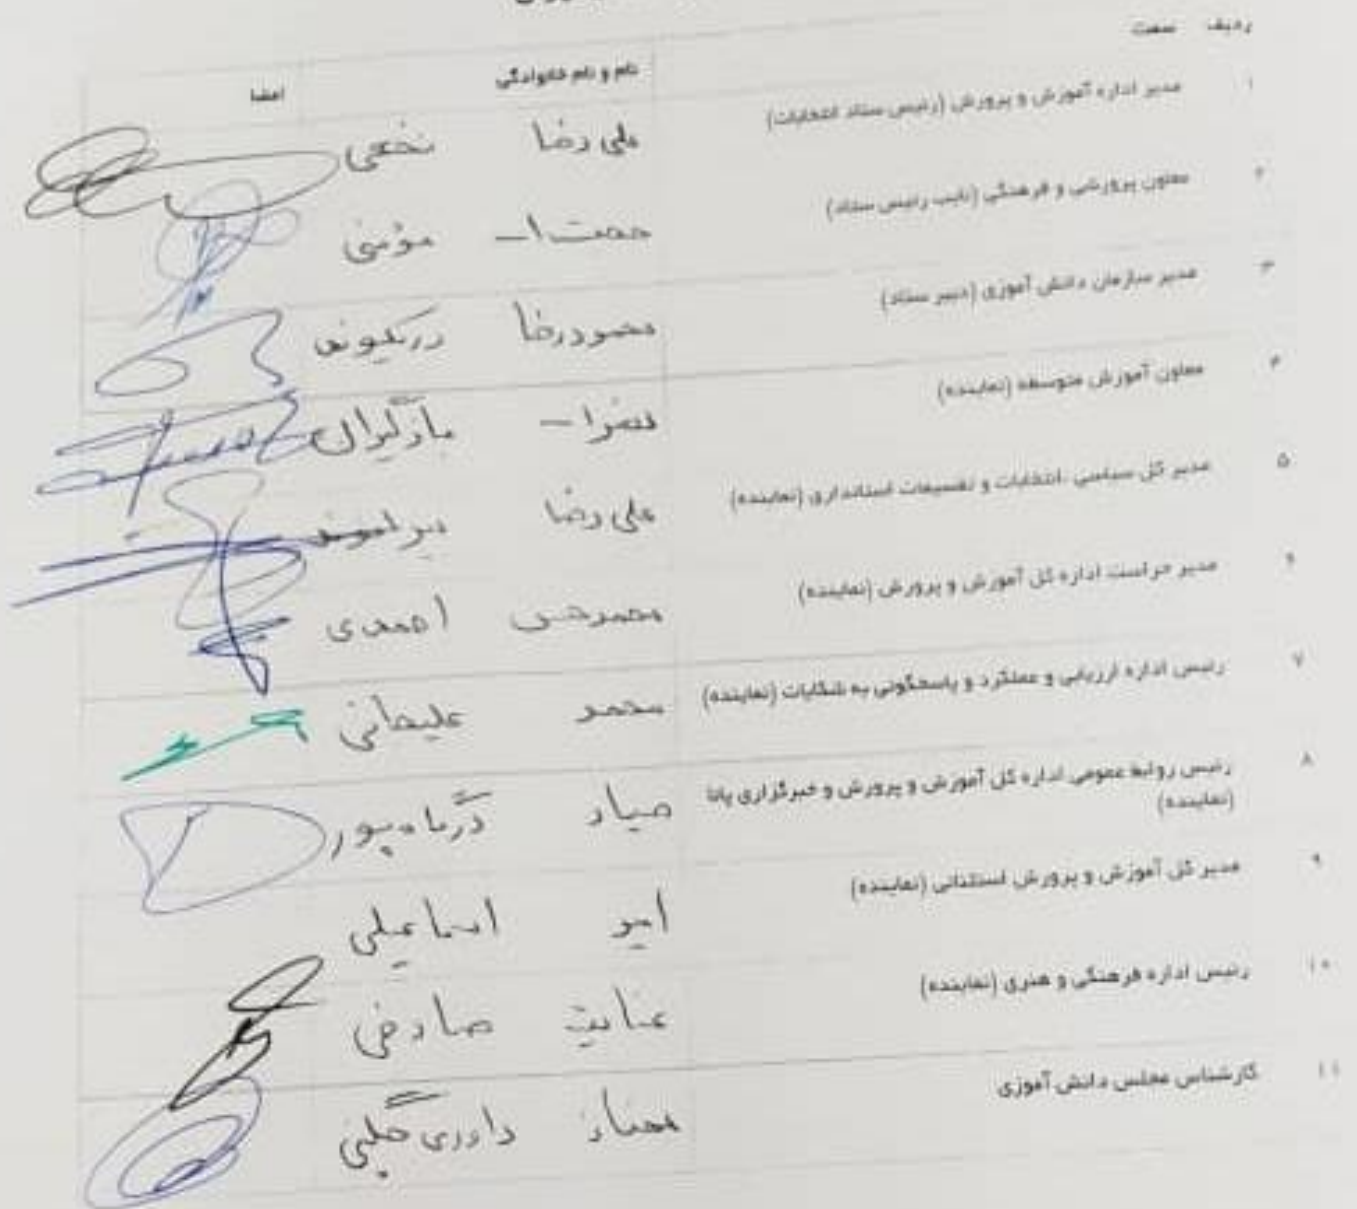 ردیف سمت نام و نام خانوادگی امضا
۱ مدیر اداره آموزش و پرورش (رئیس ستاد انتخابات) علی رضا نخعی
۲ معاون پرورشی و فرهنگی (نایب رئیس ستاد) حجت ا— مؤمنی
۳ مدیر سازمان دانش آموزی (دبیر ستاد) محمودرضا دریکوند
۴ معاون آموزش متوسطه (نماینده)
۵ مدیر کل سیاسی ،انتخابات و تقسیمات استانداری (نماینده) علی رضا
۶ مدیر حراست اداره کل آموزش و پرورش (نماینده) محمدحسن احمدی
۷ رئیس اداره ارزیابی و عملکرد و پاسخگوئی به شکایات (نماینده) محمد علیخانی
۸ رئیس روابط عمومی اداره کل آموزش و پرورش و خبرگزاری پانا
(نماینده) صیاد
۹ مدیر کل آموزش و پرورش استثنائی (نماینده) امیر اسماعیلی
۱۰ رئیس اداره فرهنگی و هنری (نماینده) عنایت صادقی
۱۱ کارشناس مجلس دانش آموزی مهناز داوری گلینی